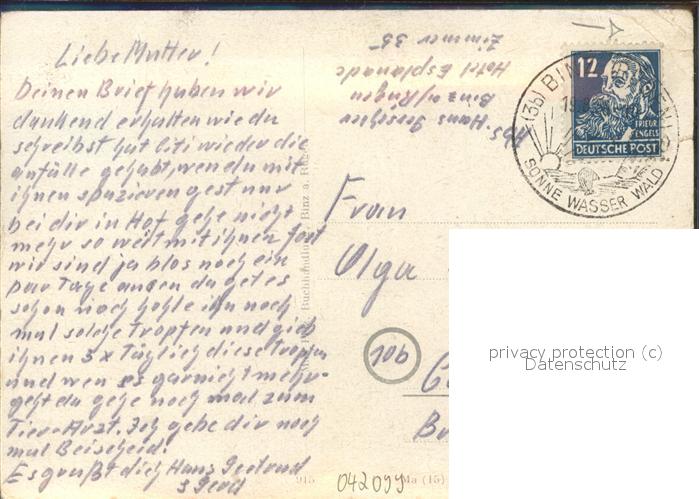 Liebe Mutter!
Deinen Brief haben wir
dankend erhalten wie du
schreibst hat Citi wieder die
anfälle gehabt, wen du mit
ihnen spazieren gest nur
bei dir in Hof gehe nicht
mehr so weit mit ihnen fort
wir sind ja blos noch ein
par Tage ausen da get es
schon noch hohle ihn noch
mal solche Tropfen und gieb
ihnen 3 x Täglich diese tropfen
und wen es garnicht mehr
geht da gehe noch mal zum
Tier-Arzt. Ich gebe dir noch
mal Beischeid.
Es grußt dich Hans Gertrud
Abs. Hans
Binz a/Rügen
Hotel Esplanade
Zimmer 35
12
DEUTSCHE POST
ENGELS
(3b) BINZ
SONNE WASSER WALD
Frau
Olga
10b
Buchhandlung Binz a. Rüg
915
042099
Ma (15)
privacy protection (c)
Datenschutz